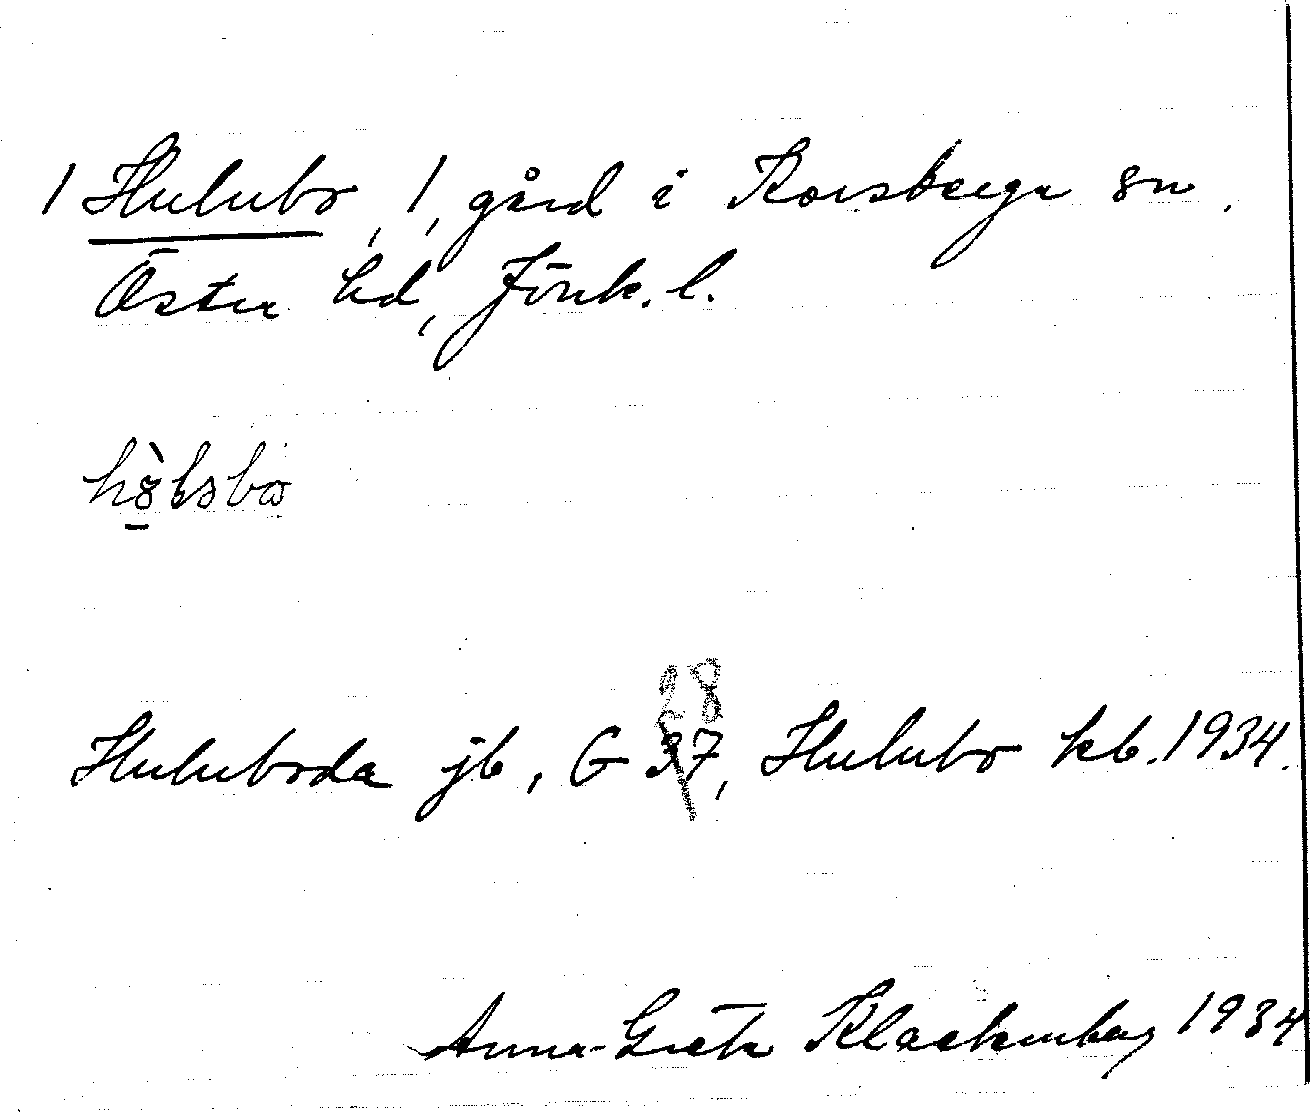 1 Hulubo, 1, gård i Korsberga sn.
Östra hd, Jönk. l.
Huluboda jb, G 37, Hulubo kb. 1934.
28
Anna-Greta Klackenberg 1934